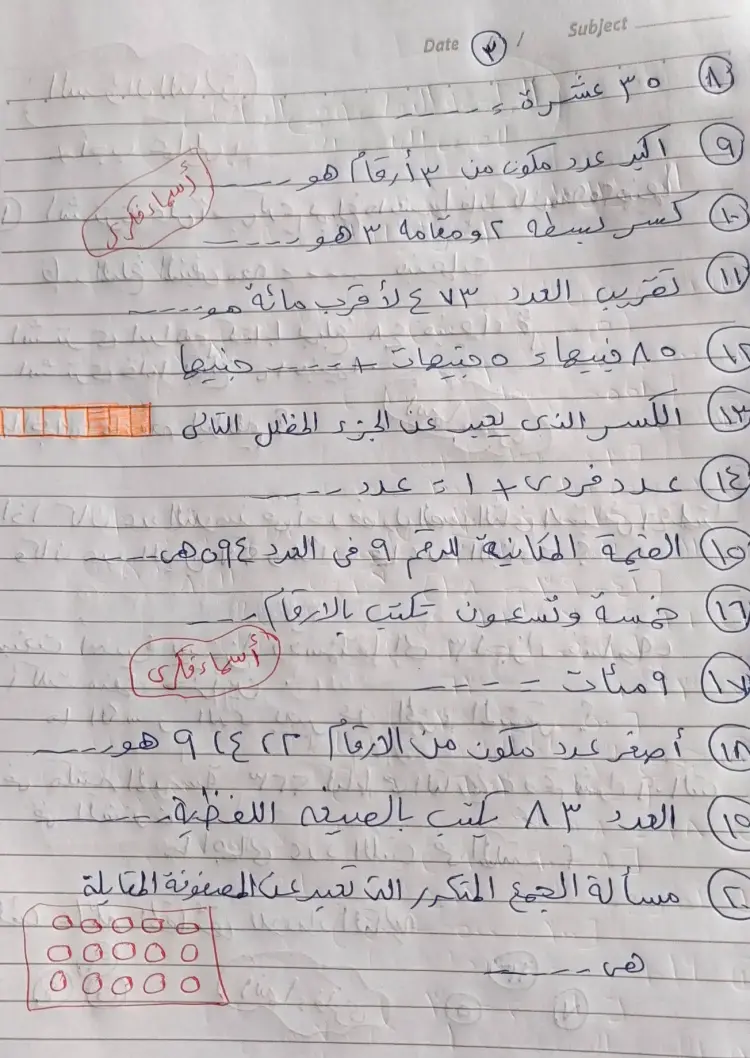 Date ٣ / Subject
٨ ٣٥ عشراة =
٩ اكبر عدد مكون من ٣ أرقام هو
أسماء فكرى
١٠ كسر بسطة ٢ ومقامة ٣ هو
١١ تقريب العدد ٤٧٣ لأقرب مائة هو
١٢ ٨٥ جنيها = ٥ جنيهات + جنيها
١٣ الكسر الذى يعبر عن الجزء المظلل التالى
١٤ عدد فردى + ١ = عدد
١٥ القيمة المكانية للرقم ٩ فى العدد ٥٩٤ هى
١٦ خمسة وتسعون تكتب بالارقام
أسماء فكرى
١٧ ٩ مئات =
١٨ أصغر عدد مكون من الارقام ٢ ، ٤ ، ٩ هو
١٩ العدد ٨٣ يكتب بالصيغه اللفظية
٢٠ مسألة الجمع المتكرر التى تعبر عن المصفوفة المقابلة
هى